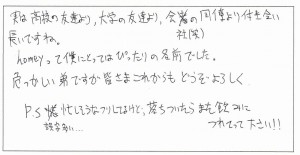 実は高校の友達より, 大学の友達より, 会社の同僚より付き合い
社(笑)
長いですね。
homeyって僕にとってはぴったりの名前でした。
危っかしい弟ですが皆さまこれからもどうぞよろしく
P.S 忙しそうなフリしてるけど、落ちついたらまた飲みに
誤字多い… つれてって下さい!!